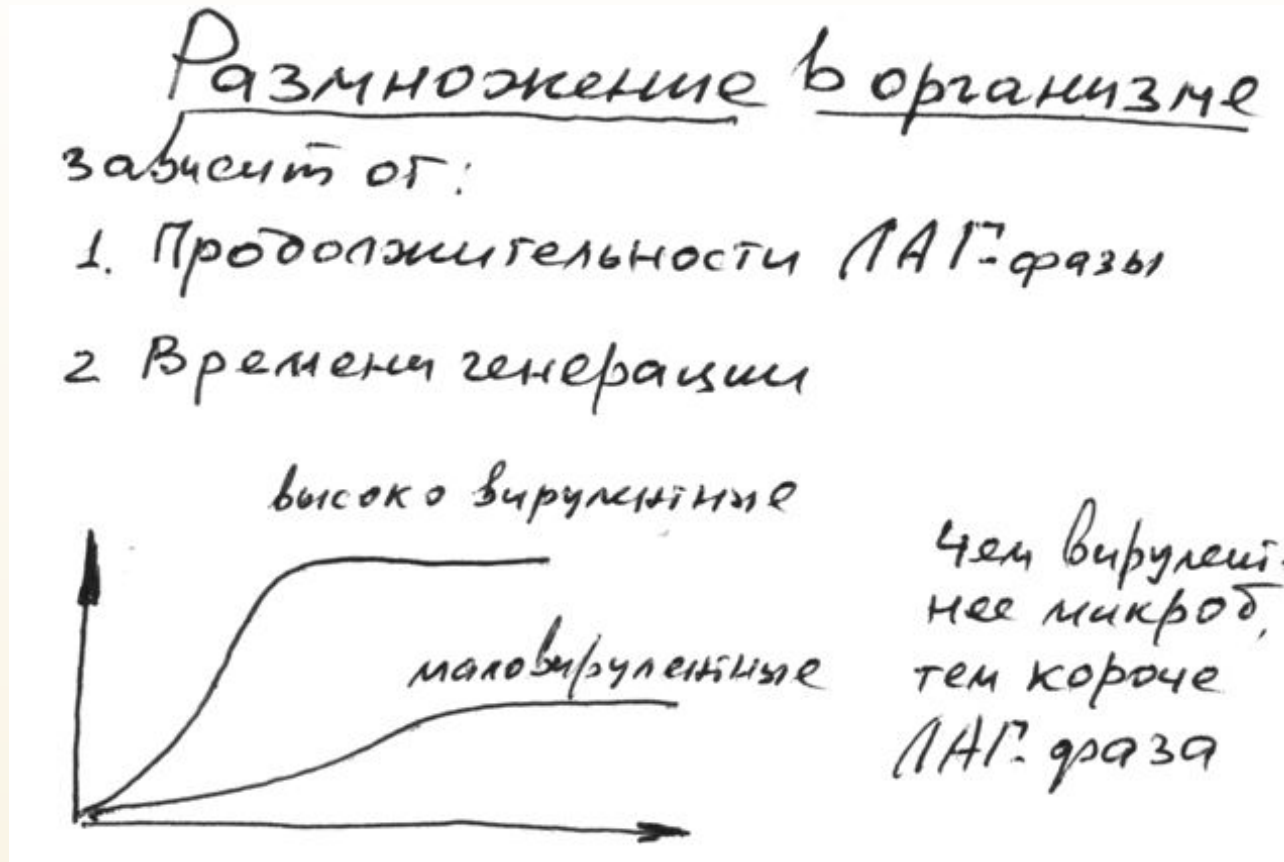 Размножение в организме
зависит от:
1. Продолжительности ЛАГ-фазы
2 Времени генерации
высоко вирулентные
маловирулентные
чем вирулент-
нее микроб,
тем короче
ЛАГ-фаза